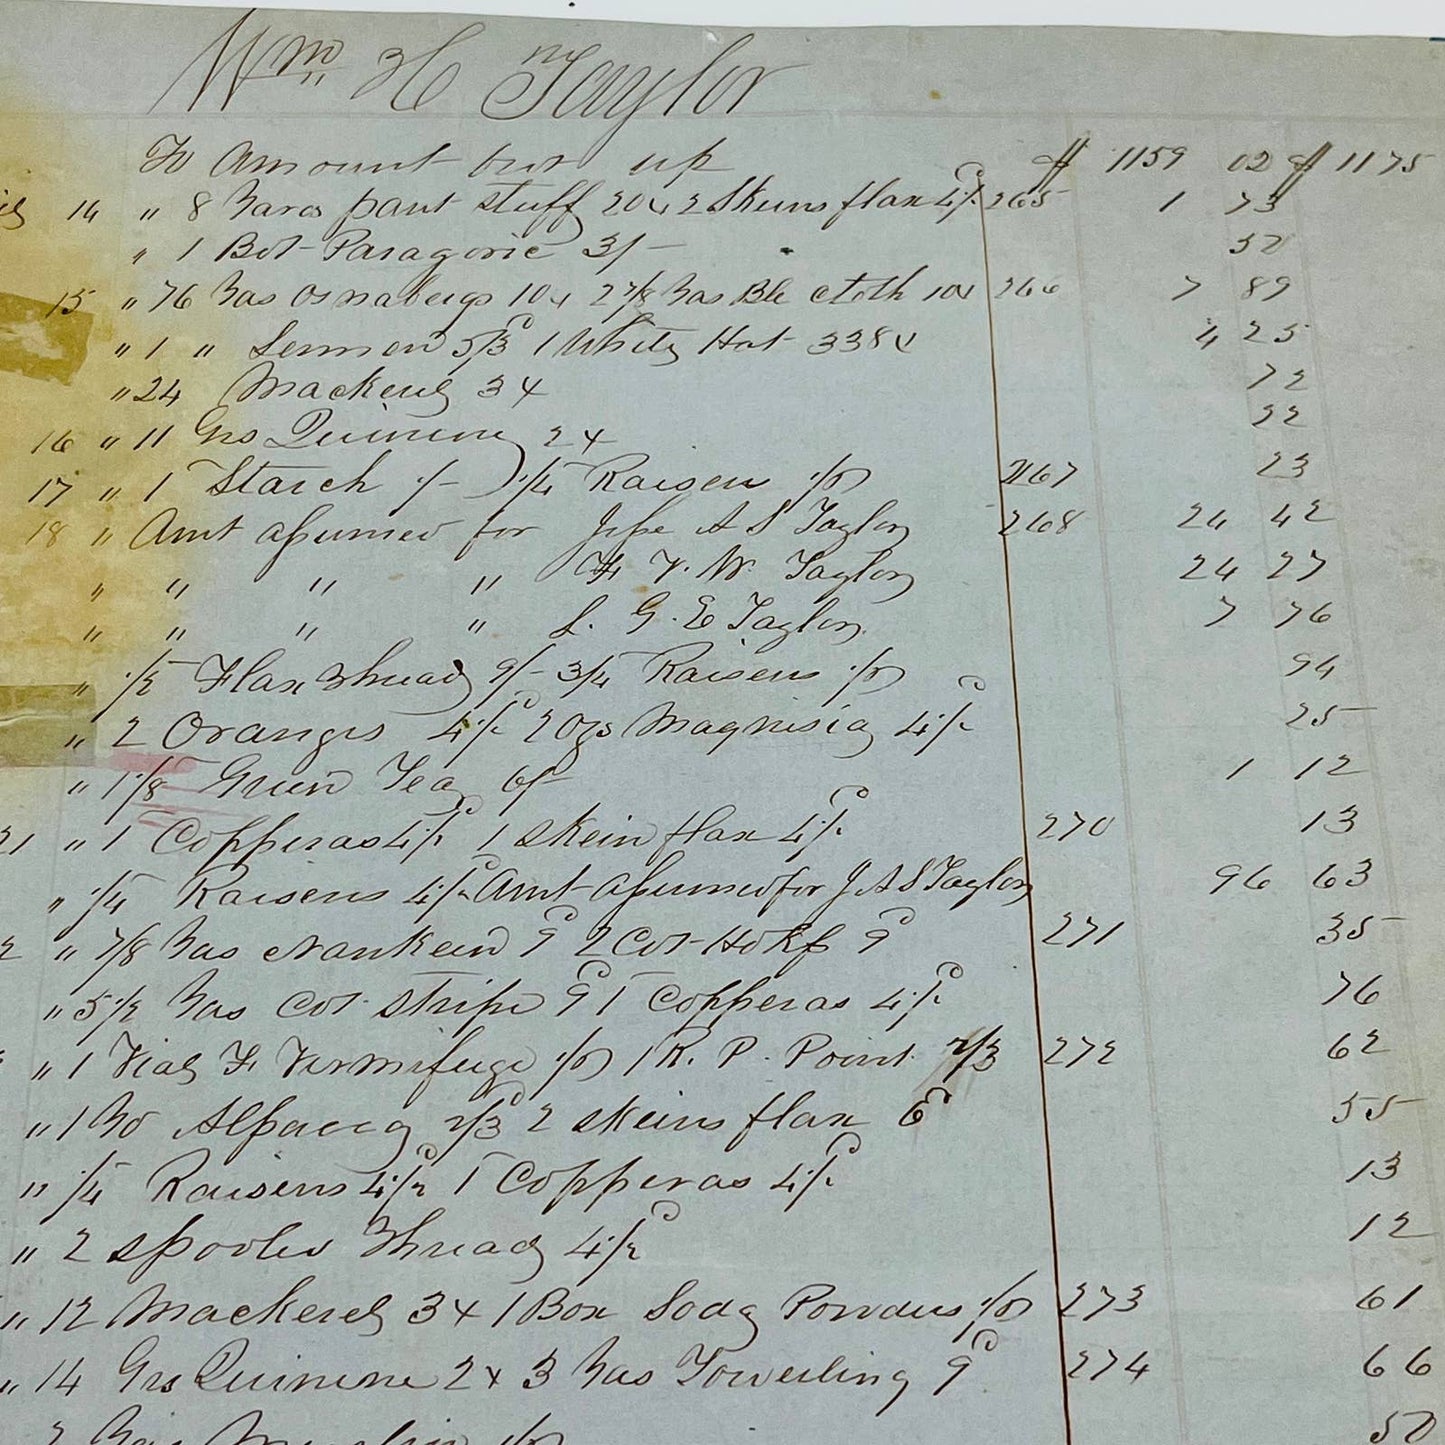 Wm H Taylor
To Amount brot up $ 1159 02 $ 1175
14 " 8 Yards pant stuff 20c 2 Skeins flax 4½c 265 1 73
" 1 Bot Paragoric 3/- 50
15 " 76 Yds Osnabergs 10c 2 7/8 Yds Ble cloth 10c 266 7 89
" 1 " 5/3 1 White Hat 338c 4 25
" 24 Mackerel 3c 72
16 " 11 Grs Quinine 2c 22
17 " 1 Starch 1/- 1/4 Raisen /6 267 23
18 " Amt assumed for Jesse A S Taylor 268 24 42
" " " " F. V. W. Taylor 24 27
" " " " L. G. E Taylor 7 76
" 1/2 Flax Thread 9/- 3/4 Raisens /6 94
" 2 Oranges 4½c 2 Ozs Magnisia 4½c 25
" 1 1/8 Green Tea 6/- 1 12
21 " 1 Copperas 4½c 1 skein flax 4½c 270 13
" 1/4 Raisens 4½c Amt assumed for J A S Taylor 96 63
2 " 7/8 Yds Nankeen 9c 2 Cot Hdkfs 9c 271 35
" 5 1/2 Yds Cot stripe 9c 1 Copperas 4½c 76
" 1 Vial F. Vermifuge /6 1 R. P. Point 2/3 272 62
" 1 Yd Alpacca 2/3 2 skeins flax 6c 55
" 1/4 Raisens 4½c 1 Copperas 4½c 13
" 2 spooles Thread 4½c 12
" 12 Mackerel 3c 1 Box Soda Powders /6 273 61
" 14 Grs Quinine 2c 3 Yds Toweling 9c 274 66
2 Yds Muslin /6 50